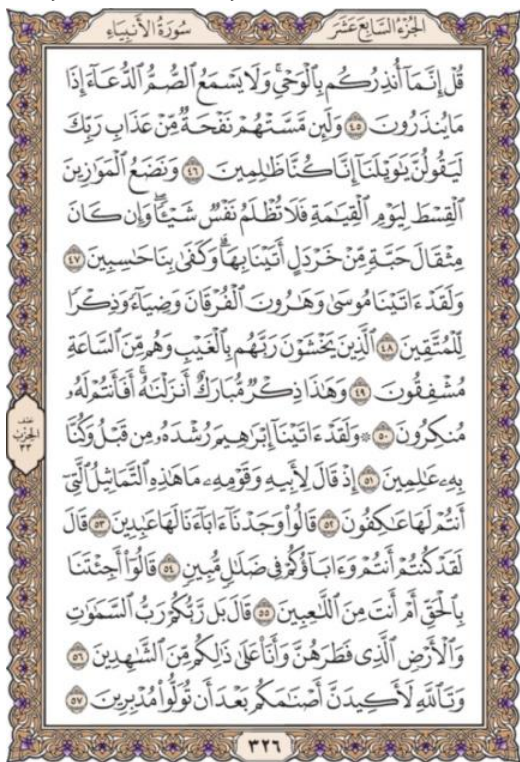 الجزء السابع عشر
سورة الأنبياء
قُلْ إِنَّمَآ أُنذِرُكُم بِٱلْوَحْىِ ۚ وَلَا يَسْمَعُ ٱلصُّمُّ ٱلدُّعَآءَ إِذَا
مَا يُنذَرُونَ ٤٥ وَلَئِن مَّسَّتْهُمْ نَفْحَةٌ مِّنْ عَذَابِ رَبِّكَ
لَيَقُولُنَّ يَٰوَيْلَنَآ إِنَّا كُنَّا ظَٰلِمِينَ ٤٦ وَنَضَعُ ٱلْمَوَٰزِينَ
ٱلْقِسْطَ لِيَوْمِ ٱلْقِيَٰمَةِ فَلَا تُظْلَمُ نَفْسٌ شَيْـًٔا ۖ وَإِن كَانَ
مِثْقَالَ حَبَّةٍ مِّنْ خَرْدَلٍ أَتَيْنَا بِهَا ۗ وَكَفَىٰ بِنَا حَٰسِبِينَ ٤٧
وَلَقَدْ ءَاتَيْنَا مُوسَىٰ وَهَٰرُونَ ٱلْفُرْقَانَ وَضِيَآءً وَذِكْرًا
لِّلْمُتَّقِينَ ٤٨ ٱلَّذِينَ يَخْشَوْنَ رَبَّهُم بِٱلْغَيْبِ وَهُم مِّنَ ٱلسَّاعَةِ
مُشْفِقُونَ ٤٩ وَهَٰذَا ذِكْرٌ مُّبَارَكٌ أَنزَلْنَٰهُ ۚ أَفَأَنتُمْ لَهُۥ
مُنكِرُونَ ٥٠ ۞ وَلَقَدْ ءَاتَيْنَآ إِبْرَٰهِيمَ رُشْدَهُۥ مِن قَبْلُ وَكُنَّا
بِهِۦ عَٰلِمِينَ ٥١ إِذْ قَالَ لِأَبِيهِ وَقَوْمِهِۦ مَا هَٰذِهِ ٱلتَّمَاثِيلُ ٱلَّتِىٓ
أَنتُمْ لَهَا عَٰكِفُونَ ٥٢ قَالُوا۟ وَجَدْنَآ ءَابَآءَنَا لَهَا عَٰبِدِينَ ٥٣ قَالَ
لَقَدْ كُنتُمْ أَنتُمْ وَءَابَآؤُكُمْ فِى ضَلَٰلٍ مُّبِينٍ ٥٤ قَالُوٓا۟ أَجِئْتَنَا
بِٱلْحَقِّ أَمْ أَنتَ مِنَ ٱللَّٰعِبِينَ ٥٥ قَالَ بَل رَّبُّكُمْ رَبُّ ٱلسَّمَٰوَٰتِ
وَٱلْأَرْضِ ٱلَّذِى فَطَرَهُنَّ وَأَنَا۠ عَلَىٰ ذَٰلِكُم مِّنَ ٱلشَّٰهِدِينَ ٥٦
وَتَٱللَّهِ لَأَكِيدَنَّ أَصْنَٰمَكُم بَعْدَ أَن تُوَلُّوا۟ مُدْبِرِينَ ٥٧
نصف
الحزب
٣٣
٣٢٦